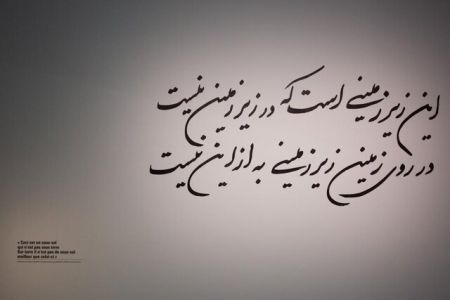 این زیر زمینی است که در زیر زمین نیست
در روی زمین زیر زمینی به از این نیست
« Ceci est un sous-sol
qui n'est pas sous terre
Sur terre il n'est pas de sous-sol
meilleur que celui-ci »